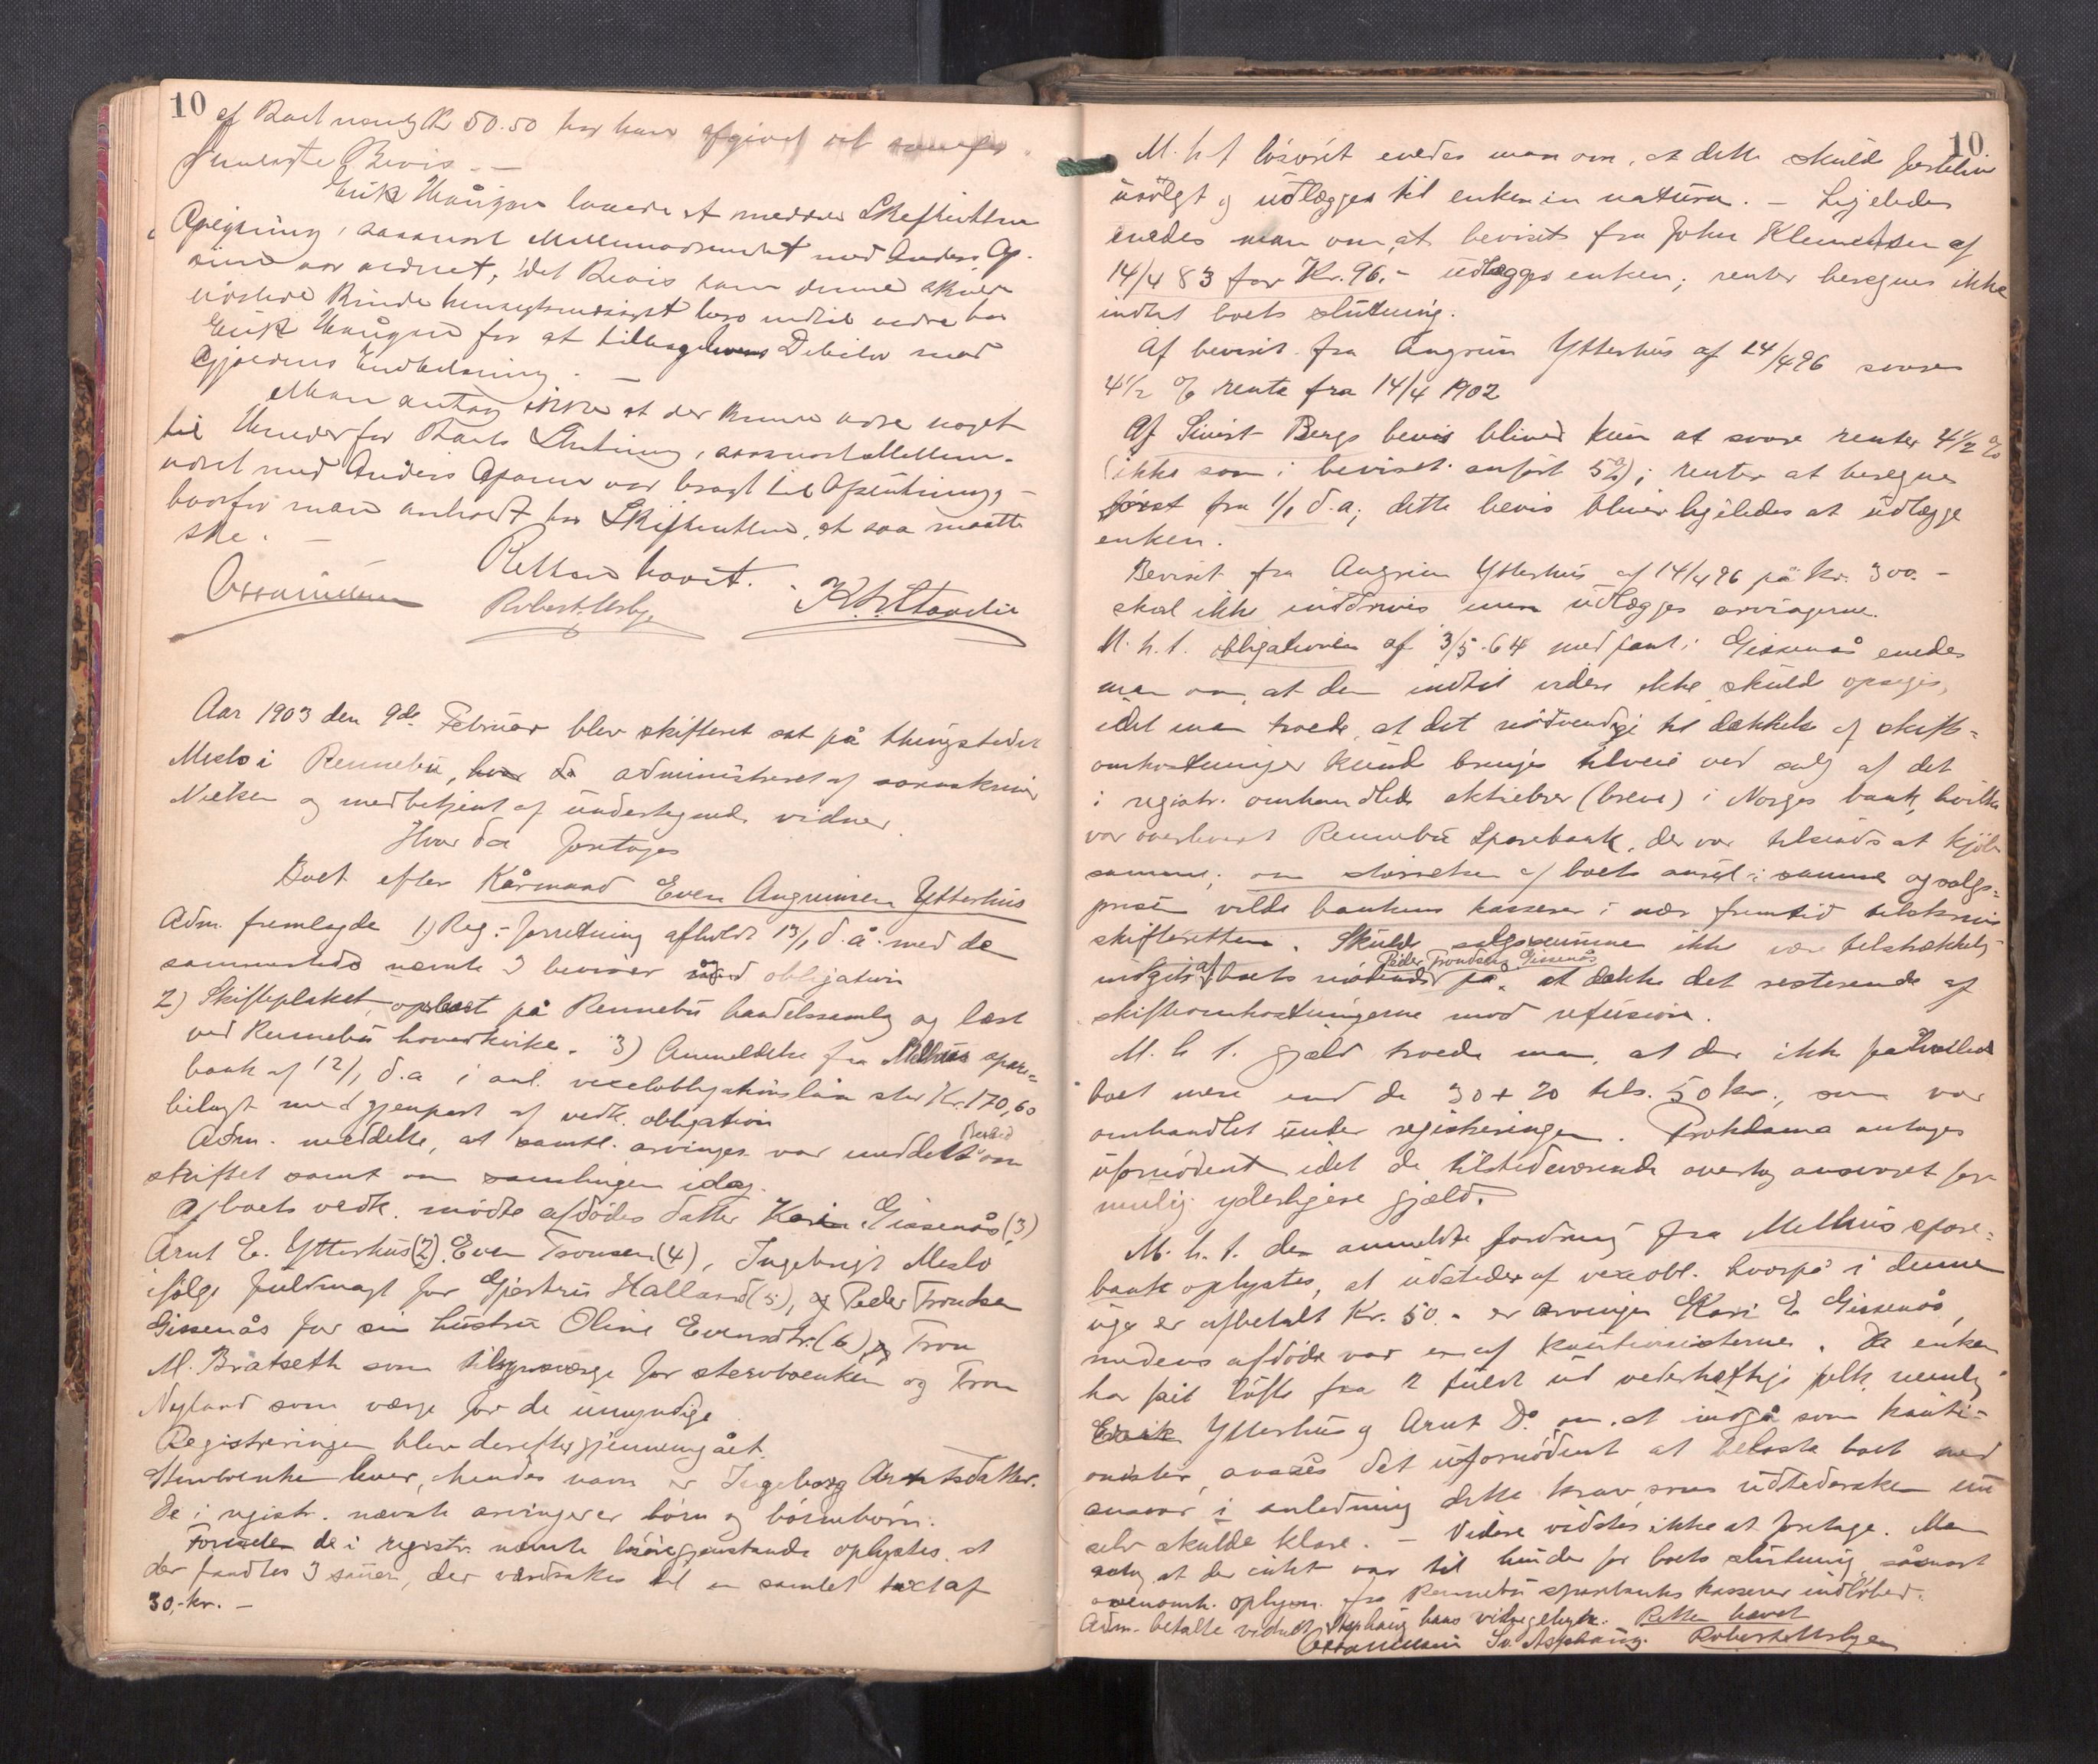 10
af Boet nemlig Kr 50.50 har han afgivet
Bevis. —
Erik Haugen lovede at meddele Skifteretten
saasnart Mellemværendet med Anders
var ordnet, idet Bevis
Erik Haugen for at Debitor mod
Gjældens Indbetaling. —
Man antog ikke at der kunde være noget
til Hinder for Boets Slutning, saasnart Mellem-
været med Anders var bragt til Afslutning, -
hvorfor man anholdt hos Skifteretten, at saa maatte
ske. —
Retten hævet.
Robert Usby
Aar 1903 den 9de Februar blev skifteret sat på thingstedet
Meslo i Rennebu, hvor da administreret af sorenskriver
Nielsen og medbetjent af undertegnede vidner.
Hvor da foretoges
Boet efter Kårmand Even Angrimsen Ytterhus
Adm. fremlagde 1) Reg.-forretning afholdt 13/1 d.å. med de
sammesteds nævnte 3 beviser og obligation
2) Skifteplakat, oplæst på Rennebu handelssamlag og læst
ved Rennebu hovedkirke. 3) Anmeldelse fra Melhus spare=
bank af 12/1 d.a i anl. vexelobligationslån stor Kr. 170,60
bilagt med gjenpart af vedk. obligation
Adm. meddelte, at samtl. arvinger var meddelt Besked om
skiftet samt om samlingen idag.
Af boets vedk. mödte afdödes datter Kari Gissenås (3)
Arnt E. Ytterhus (2), Even Tronsen (4), Ingebrigt Meslo
ifölge fuldmagt for Gjertru Halland (5), og Peder Trondsen
Gissenås for sin hustru Oline Evensdtr. (6), og Tron
M. Bratseth som tilsynsværge for stervboenken og Tron
Nyland som værge for de umyndige
Registreringen blev derefter gjennemgået.
Stervboenken lever, hendes navn er Ingeborg Arntsdatter.
De i registr. nævnte arvinger er börn og börnebörn.
Foruden de i registr. nævnte lösöregjenstande oplystes, at
der fandtes 3 sauer, der værdsattes til en samlet taxt af
30,- kr. —
10.
M. h t lösöret enedes man om, at dette skulde forblive
usolgt og udlægges til enken in natura. — Ligeledes
enedes man om, at beviset fra John Klemetsen af
14/4 83 for Kr. 96.- udlægges enken; renter beregnes ikke
indtil boets slutning.
Af beviset fra Angrim Ytterhus af 14/4 96 svares
4 1/2 % rente fra 14/4 1902
Af Sivert Bergs bevis bliver kun at svare renter 4 1/2 %
(ikke som i beviset anfört 5%); renter at beregne
först fra 1/1 d.a; dette bevis bliver ligeledes at udlægge
enken.
Beviset fra Angrim Ytterhus af 14/4 96 på kr. 300.-
skal ikke inddrives men udlægges arvingerne.
M. h. t. obligationen af 3/5.64 med pant i Gissenås enedes
man om, at den indtil videre ikke skulde opsiges,
idet man troede, at det nödvendige til dækkelse af skifte=
omkostninger kunde bringes tilveie ved salg af det
i registr. omhandlede aktiebrev (breve) i Norges bank, hvilke
var overlevert Rennebu Sparebank, der var tilsinds at kjöbe
samme; om störrelsen af boets anpt i samme og salgs=
prisen vilde bankens kasserer i nær fremtid tilskrive
skifteretten. Skulde salgssummen ikke være tilstrækkelig
indgik af boets mödende Peder Trondsen Gissenås på, at dække det resterende af
skifteomkostningerne mod refusion.
M. h t. gjæld troede man, at der ikke påhvilede
boet mere end de 30 + 20 tils. 50 kr., som var
omhandlet under registreringen. Proklama antages
ufornödent idet de tilstedeværende overtog ansvaret for
mulig yderligere gjæld.
M. h. t. den anmeldte fordring fra Melhus spare=
bank oplystes, at udsteder af vexelobl. hvorpå i denne
uge er afbetalt Kr. 50.- er arvingen Kari E Gissenås,
medens afdöde var en af kautionisterne. Da enken
har fåit löfte fra 2 fuldt ud vederheftige folk, nemlig
Erik Ytterhus og Arnt Do om, at indgå som kauti=
onister, ansåes det ufornödent at belaste boet med
ansvar i anledning dette krav, som udstedersken
selv skulde klare. — Videre vidstes ikke at foretage. Man
antog, at der intet var til hinder for boets slutning, såsnart
ovenomh. oplysn. fra Rennebu sparebanks kasserer indlöber.
Adm. betalte vidnet Asphaug hans vidnegebyr. Retten hævet
Sv. Asphaug. Robert Usbye